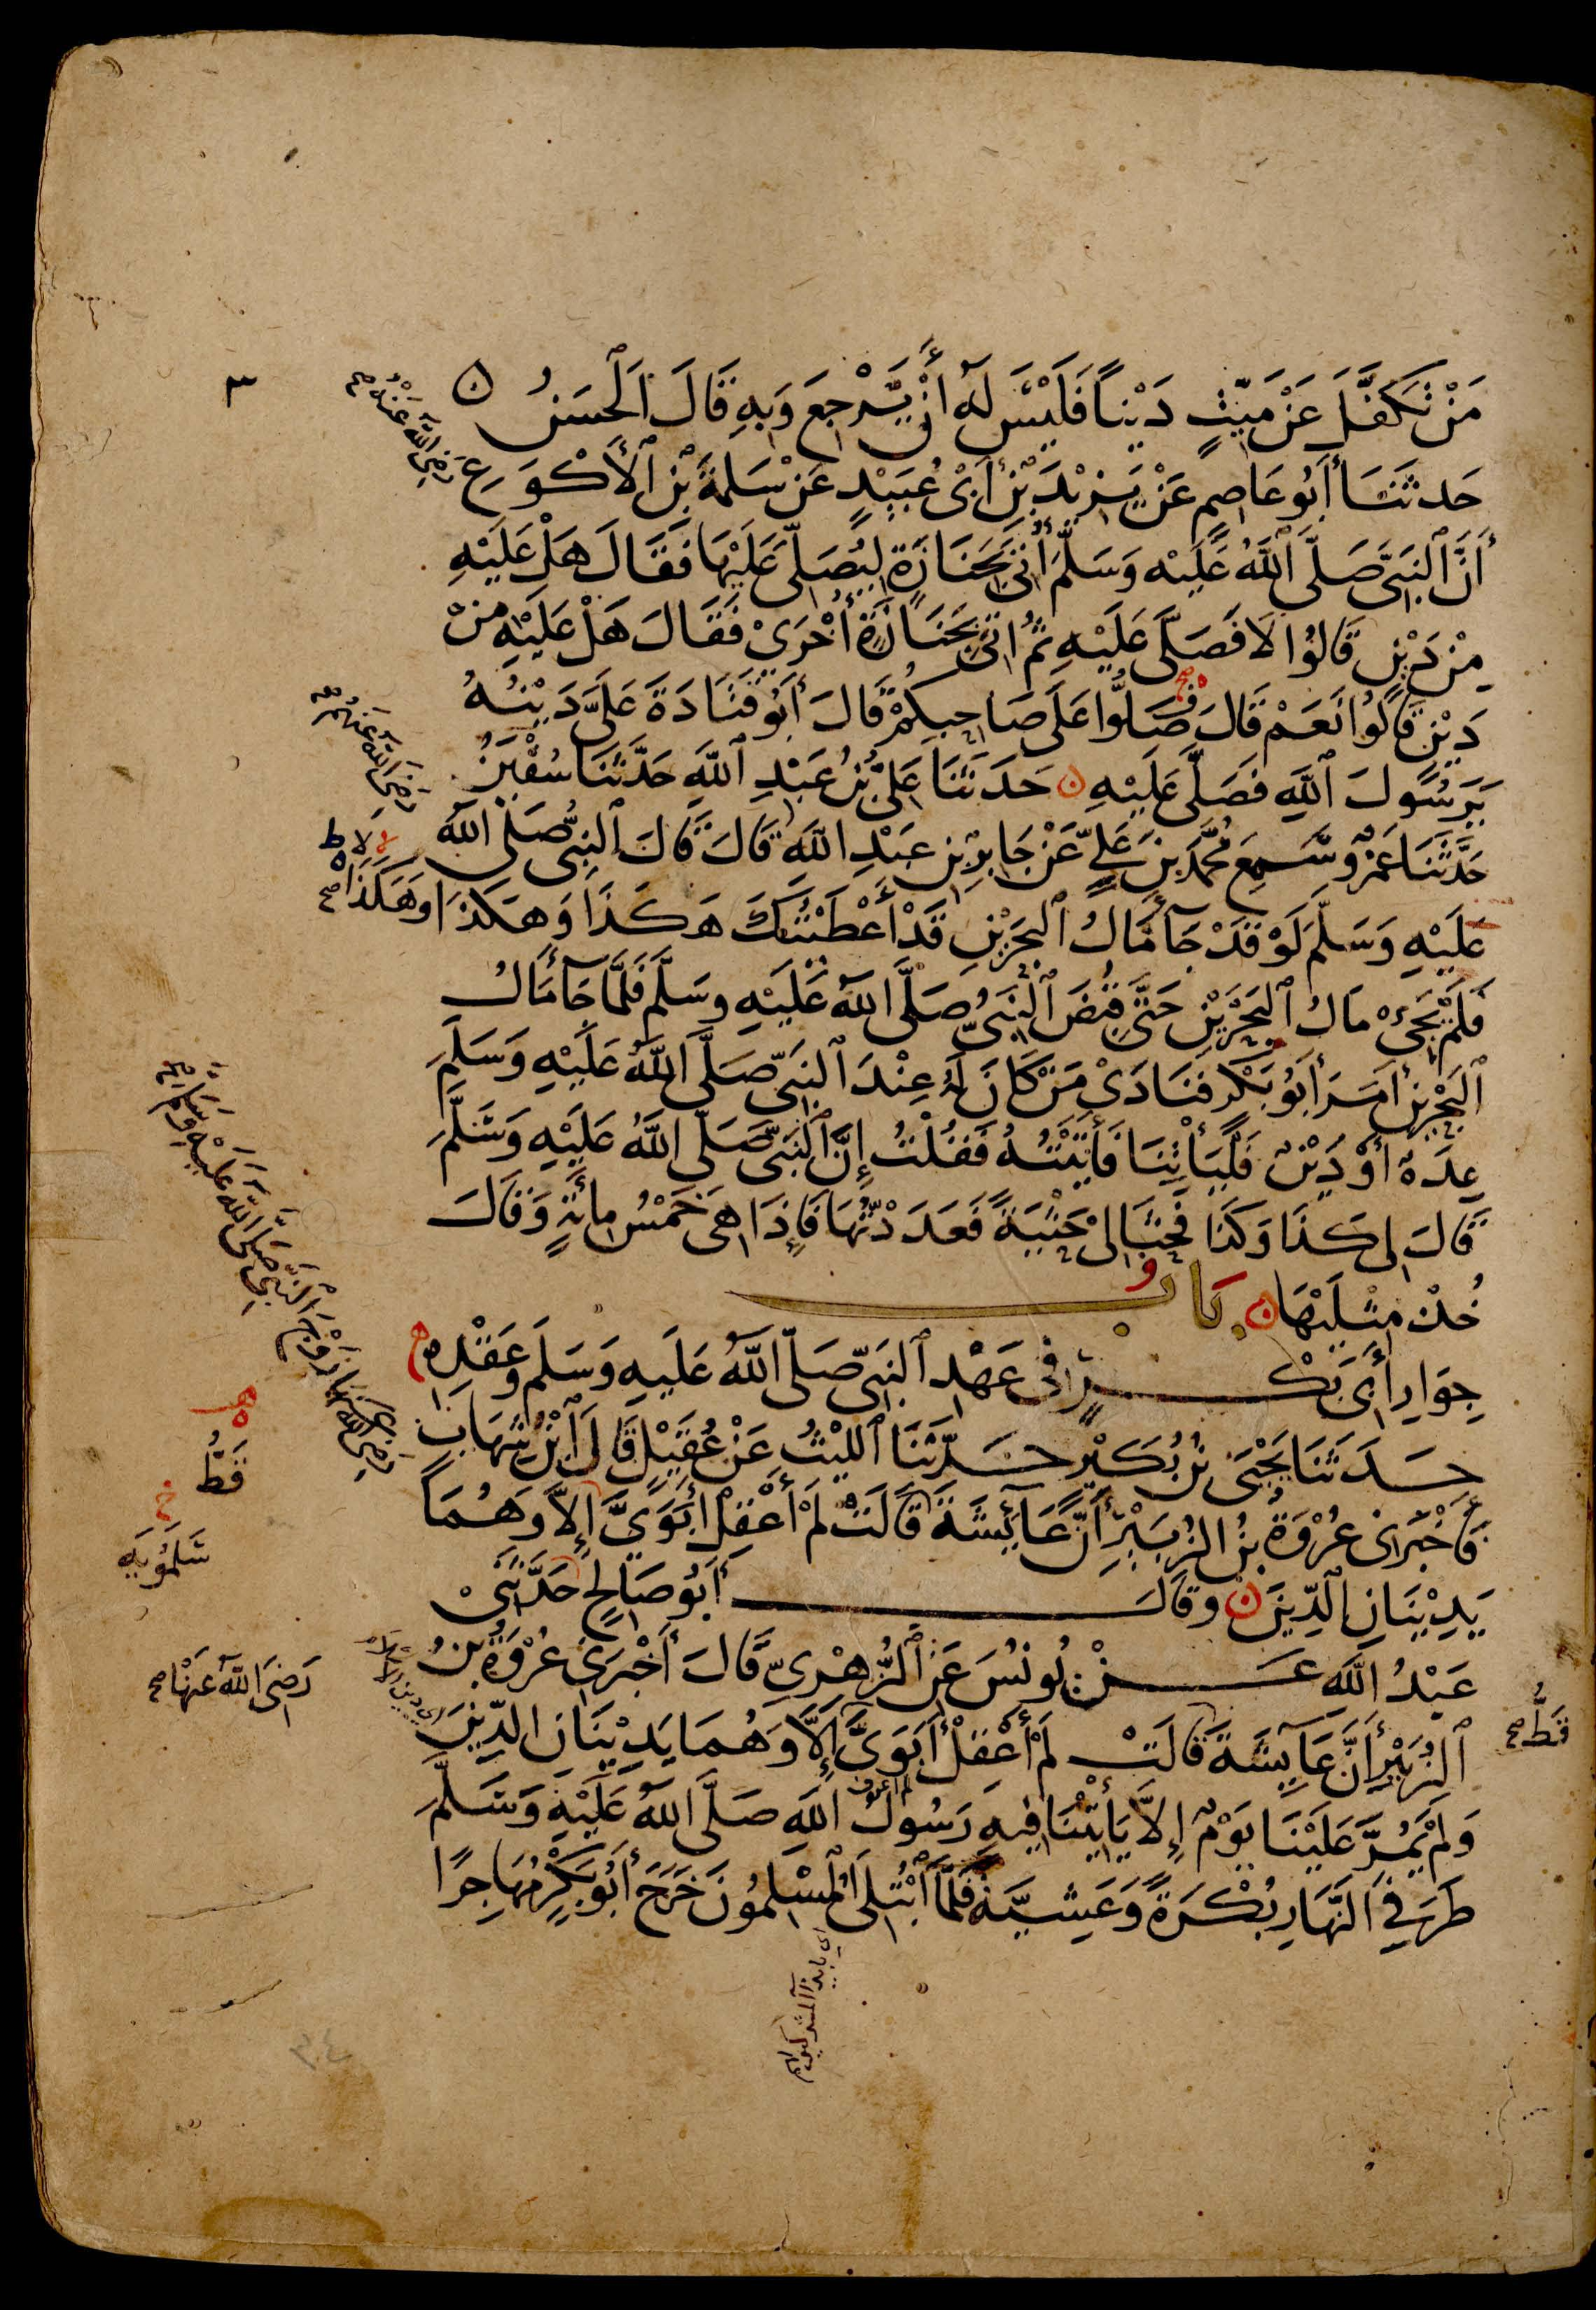 مَنْ تَكَفَّلَ عَنْ مَيِّتٍ دَيْنًا فَلَيْسَ لَهُ أَنْ يَرْجِعَ وَبِهِ قَالَ الْحَسَنُ
حَدثَنَا أَبُو عَاصِمٍ عَنْ يَزِيْدَ بْنِ أَبِيْ عُبَيْدٍ عَنْ سَلَمَةَ بْنِ الْأَكْوَعِ
رَضِيَ اللَّهُ عَنْهُ صح
أَنَّ النَّبِيَّ صَلَّى اللَّهُ عَلَيْهِ وَسَلَّمَ أُتِيَ بِجَنَازَةٍ لِيُصَلِّيَ عَلَيْهَا فَقَالَ هَلْ عَلَيْهِ
مِنْ دَيْنٍ قَالُوْا لَا فَصَلَّى عَلَيْهِ ثُمَّ اُتِيَ بِجَنَازَةٍ أُخْرَى فَقَالَ هَلْ عَلَيْهِ مِنْ
دَيْنٍ قَالُوْا نَعَمْ قَالَ فَصَلُّوا عَلَى صَاحِبِكُمْ قَالَ أَبُو قَتَادَةَ عَلَيَّ دَيْنُهُ
يَا رَسُولَ اللَّهِ فَصَلَّى عَلَيْهِ ن حَدَثَنَا عَلِيُّ بْنُ عَبْدِ اللَّهِ حَدَّثَنَا سُفْيٰنُ
حَدَّثَنَا عَمْرٌو سَمِعَ مُحَمَّدَ بْنَ عَلِيٍّ عَنْ جَابِرِ بْنِ عَبْدِ اللَّهِ قَالَ قَالَ النَّبِيُّ صَلَّى اللَّهُ
رَضِيَ اللَّهُ عَنْهُمْ صح
عَلَيْهِ وَسَلَّمَ لَوْ قَدْ جَآءَ مَالُ الْبَحْرَيْنِ قَدْ أَعْطَيْتُكَ هَكَذَا وَهَكَذَا وَهَكَذَا صح
فَلَمْ يَجِئْ مَالُ الْبَحْرَيْنِ حَتَّى قُبِضَ النَّبِيُّ صَلَّى اللَّهُ عَلَيْهِ وسَلَّمَ فَلَمَّا جَآءَ مَالُ
الْبَحْرَيْنِ أَمَرَ أَبُوْ بَكْرٍ فَنَادَىْ مَنْ كَانَ لَهُ عِنْدَ النَّبِيِّ صَلَّى اللَّهُ عَلَيْهِ وَسَلَّمَ
عِدَةٌ أَوْ دَيْنٌ فَلْيَأْتِنَا فَأَتَيْتُهُ فَقُلْتُ إِنَّ النَّبِيَّ صَلَّى اللَّهُ عَلَيْهِ وَسَلَّمَ
قَالَ لِي كَذَا وَكَذَا فَحَثَا لِيْ حَثْيَةً فَعَدَدْتُهَا فَإِذَا هِيَ خَمْسُ مِائَةٍ وَقَالَ
خُذْ مِثْلَيْهَا ن بَابُ
جِوَارِ أَبِيْ بَكْرٍ فِي عَهْدِ النَّبِيِّ صَلَّى اللَّهُ عَلَيهِ وَسَلَّمَ وَعَقْدِهِ
رَضِيَ اللَّهُ عَنْهَا زَوْجَ النَّبِيِّ صَلَّى اللَّهُ عَلَيْهِ وَسَلَّمَ صح
حَدَثَنَا يَحْيَى بْنُ بُكَيْرٍ حَدَّثَنَا اللَّيْثُ عَنْ عُقَيْلٍ قَالَ ابْنُ شِهَابٍ
فَأَخْبَرَنِي عُرْوَةُ بْنُ الزُّبَيْرِ أَنَّ عَائِشَةَ قَالَتْ لَمْ أَعْقِلْ أَبَوَيَّ إِلَّا وَهُمَا
قَطُّ
يَدِيْنَانِ الدِّيْنَ ن وَقَالَ أَبُوْ صَالِحٍ حَدَّثَنِيْ
سَلَمُوْيَهِ
عَبْدُ اللَّهِ عَنْ يُونُسَ عَنِ الزُّهْرِيِّ قَالَ أَخْبَرَنِيْ عُرْوَةُ بْنُ
رَضِيَ اللَّهُ عَنْهَا صح
الزُّبَيْرِ أَنَّ عَائِشَةَ قَالَتْ لَمْ أَعْقِلْ أَبَوَيَّ إِلَّا وَهُمَا يَدِيْنَانِ الدِّيْنَ
قَطُّ صح
لم اعرف
وَلَمْ يَمُرَّ عَلَيْنَا يَوْمٌ إِلَّا يَأْتِيْنَا فِيهِ رَسُولُ اللَّهِ صَلَّى اللَّهُ عَلَيْهِ وَسَلَّمَ
طَرَفَيِ النَّهَارِ بُكْرَةً وَعَشِيَّةً فَلَمَّا ابْتُلِيَ الْمُسْلِمُونَ خَرَجَ أَبُوْ بَكْرٍ مُهَاجِرًا